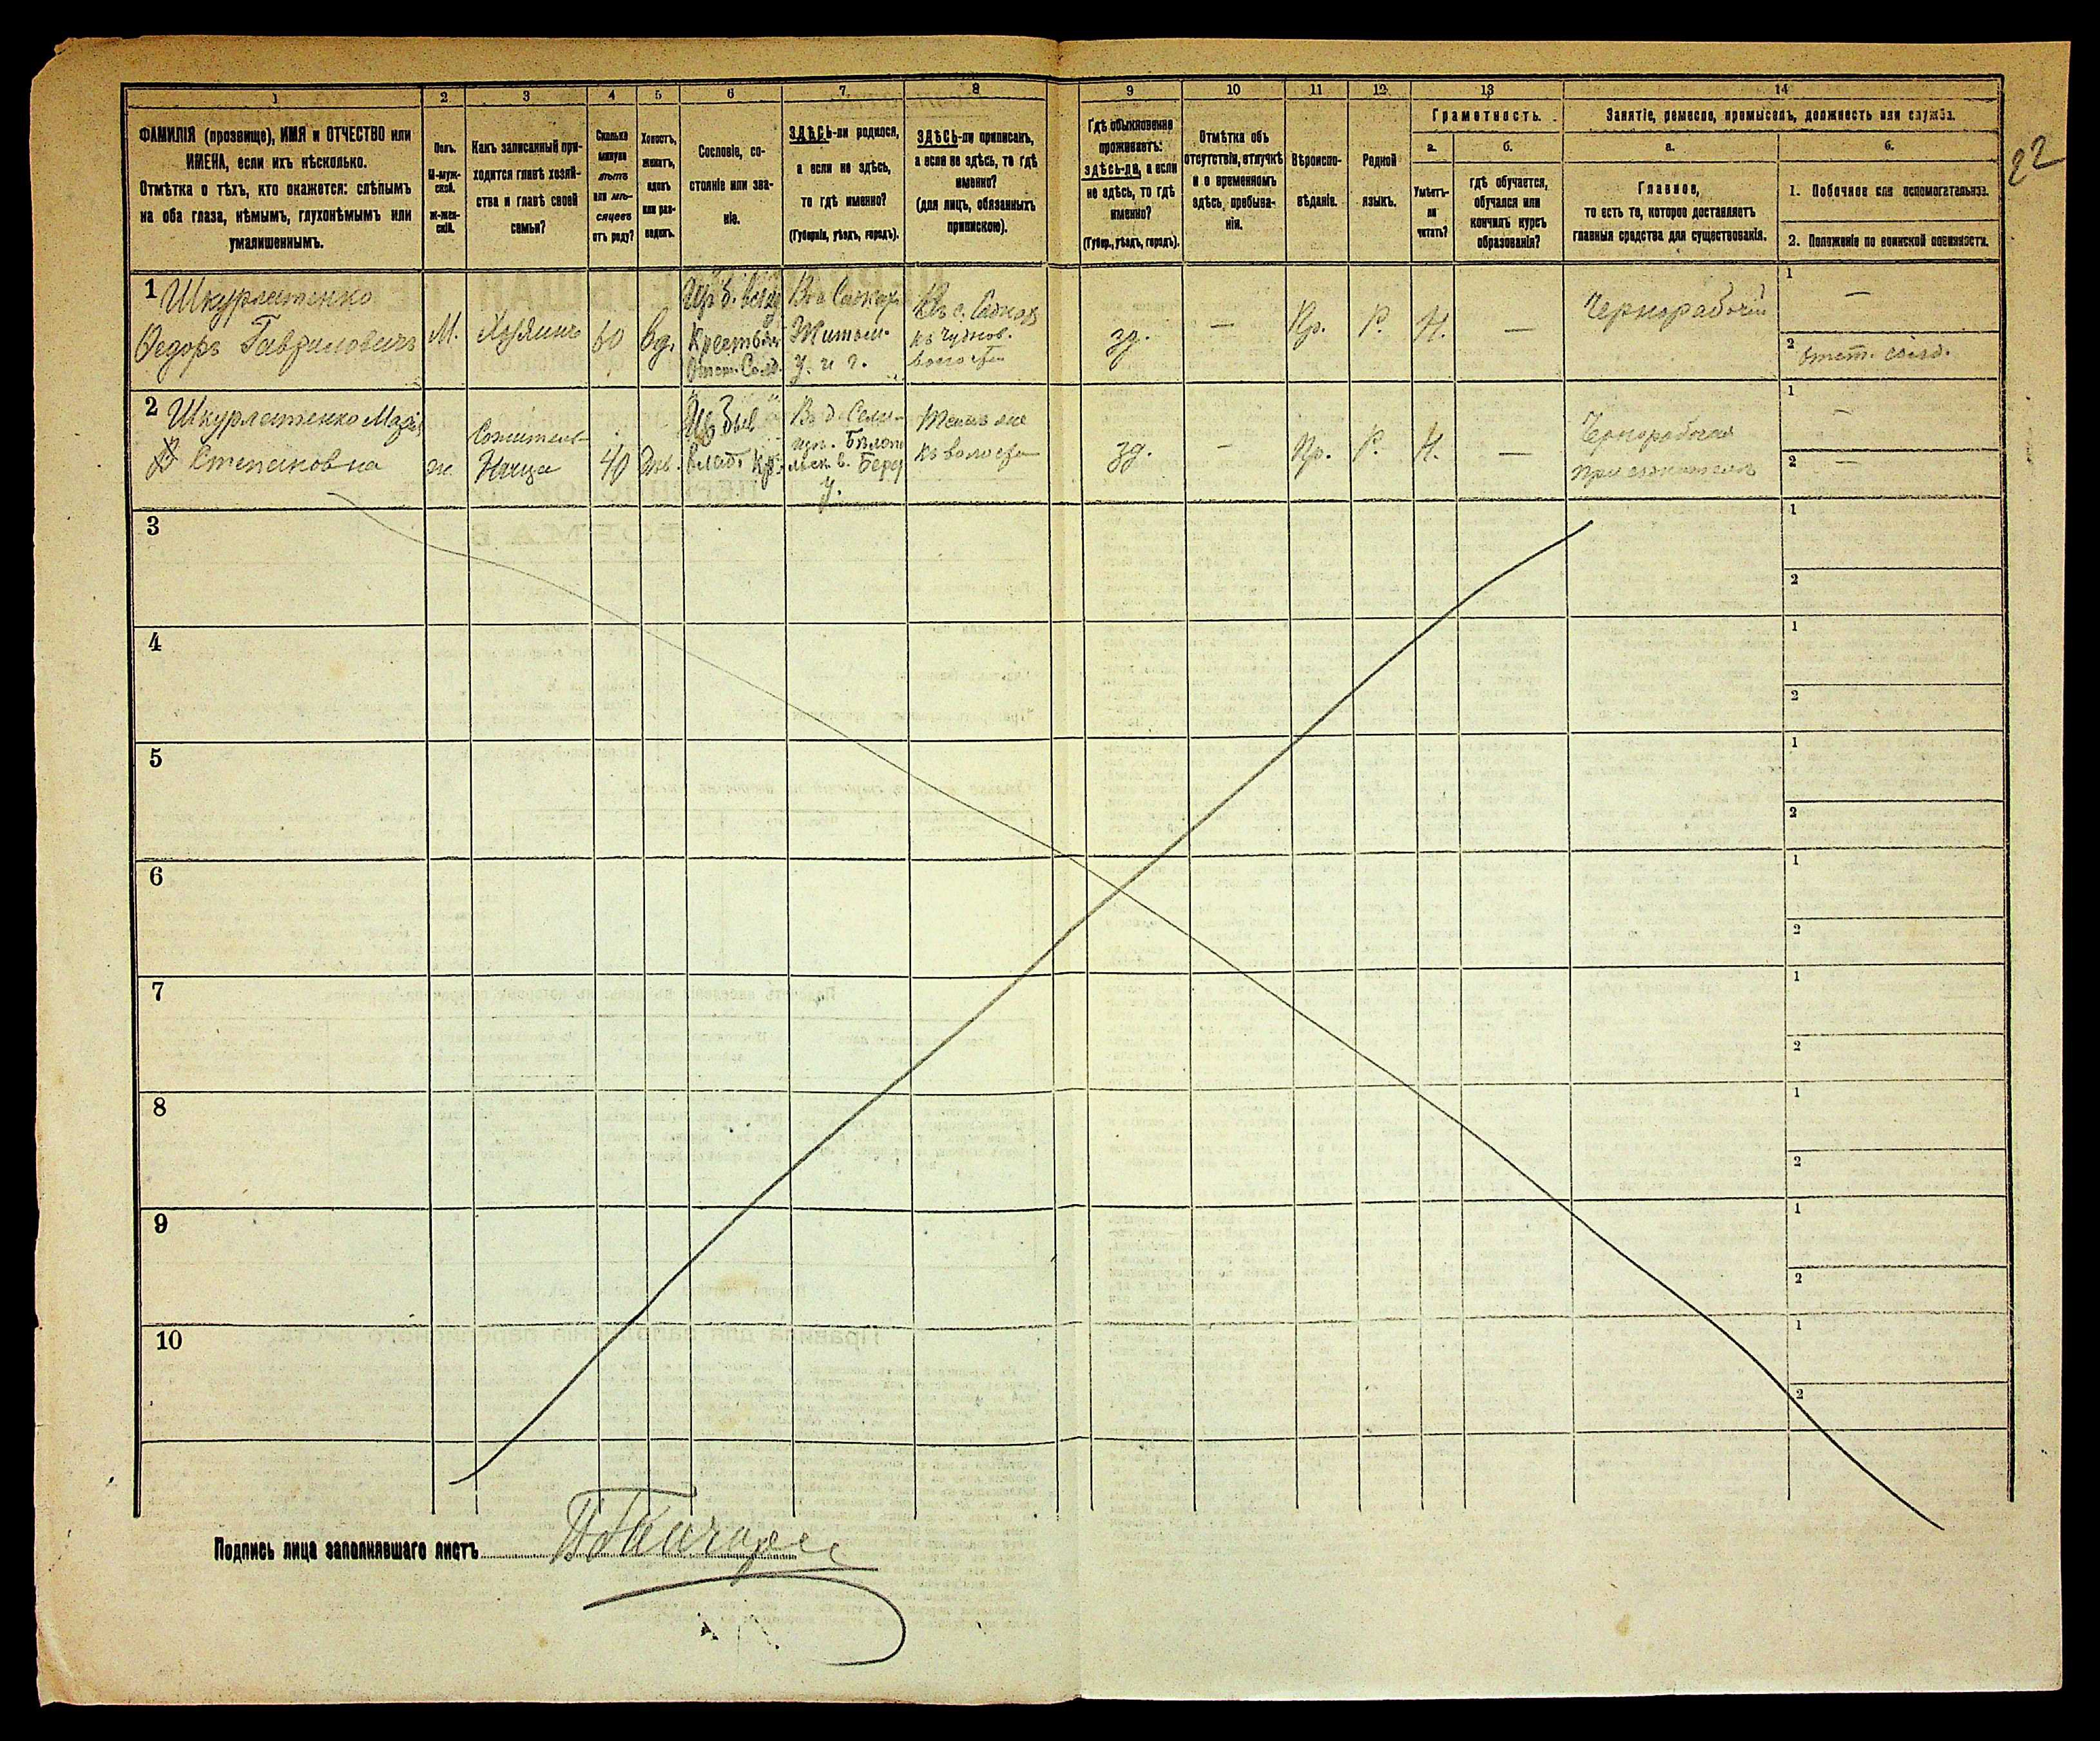 22
1 2 3 4 5 6 7 8 9 10 11 12 13 14
ФАМИЛІЯ (прозвище), ИМЯ и ОТЧЕСТВО или
ИМЕНА, если ихъ нѣсколько.
Отмѣтка о тѣхъ, кто окажется: слѣпымъ
на оба глаза, нѣмымъ, глухонѣмымъ или
умалишеннымъ.
Полъ.
М-муж-
ской.
ж-жен-
скій.
Какъ записанный при-
ходится главѣ хозяй-
ства и главѣ своей
семьи?
Сколько
минуло
лѣтъ
или мѣ-
сяцевъ
отъ роду?
Холостъ,
женатъ,
вдовъ
или раз-
веденъ.
Сословіе, со-
стояніе или зва-
ніе.
ЗДѢСЬ-ли родился,
а если не здѣсь,
то гдѣ именно?
(Губернія, уѣздъ, городъ).
ЗДѢСЬ-ли приписанъ,
а если не здѣсь, то гдѣ
именно?
(для лицъ, обязанныхъ
припискою).
Гдѣ обыкновенно
проживаетъ:
здѣсь-ли, а если
не здѣсь, то гдѣ
именно?
(Губер., уѣздъ, городъ).
Отмѣтка объ
отсутствіи, отлучкѣ
и о временномъ
здѣсь пребыва-
ніи.
Вѣроиспо-
вѣданіе.
Родной
языкъ.
Грамотность.
а.
Умѣетъ-
ли
читать?
б.
гдѣ обучается,
обучался или
кончилъ курсъ
образованія?
Занятіе, ремесло, промыселъ, должность или служба.
а.
Главное,
то есть то, которое доставляетъ
главныя средства для существованія.
б.
1. Побочное или вспомогательное.
2. Положеніе по воинской повинности.
1 Шкурлатенко
Федоръ Гавриловичъ
М.
Хозяинъ
60
Вд.
Отст. Солд.
Житом.
У.
волости
зд.
—
Пр.
Р.
Н.
—
Чернорабочій
1 —
2 отст. солд.
2 Шкурлатенко
Степановна
ж.
Сожитель-
ница
40
У.
къ волости
зд.
—
Пр.
Р.
Н.
—
Чернорабочая
1 —
2 —
3
1
2
4
1
2
5
1
2
6
1
2
7
1
2
8
1
2
9
1
2
10
1
2
Подпись лица заполнявшаго листъ